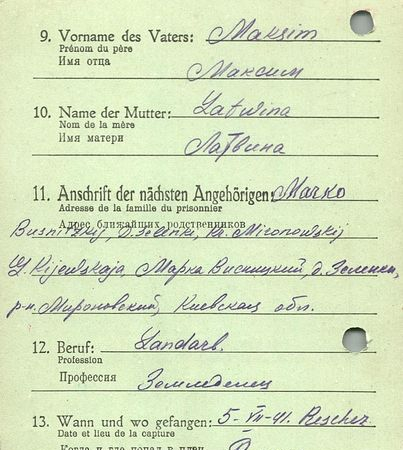 9. Vorname des Vaters: Maksim
Prénom du père
Имя отца
Максим
10. Name der Mutter: Latwina
Nom de la mère
Имя матери
Латвина
11. Anschrift der nächsten Angehörigen: Marko
Adresse de la famille du prisonnier
Адрес ближайших родственников
Busnitzkij, D. Selenki, Kr. Mironowskij
G. Kijewskaja Марка Висницкий, д. Зеленки,
р-н. Мироновский, Киевская обл.
12. Beruf: Landarb.
Profession
Профессия
Земледелец
13. Wann und wo gefangen: 5-VII-41.
Date et lieu de la capture
Когда и где попал в плен